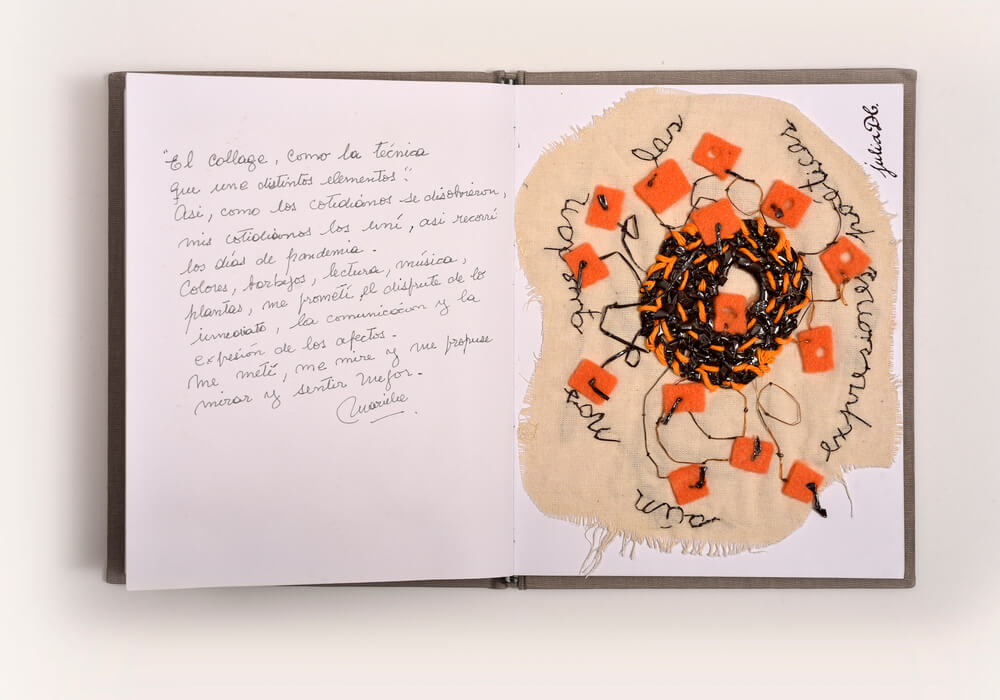 "El collage, como la técnica
que une distintos elementos".
Asi, como los cotidianos se disolvieron,
mis cotidianos los uní, asi recorrí
los días de pandemia.
Colores, barbijos, lectura, música,
plantas, me prometí el disfrute de lo
inmediato, la comunicación y la
expesión de los afectos.
Me metí, me mire y me propuse
mirar y sentir mejor.
julia Db.
las
poéticas
expresiones
aún
nos